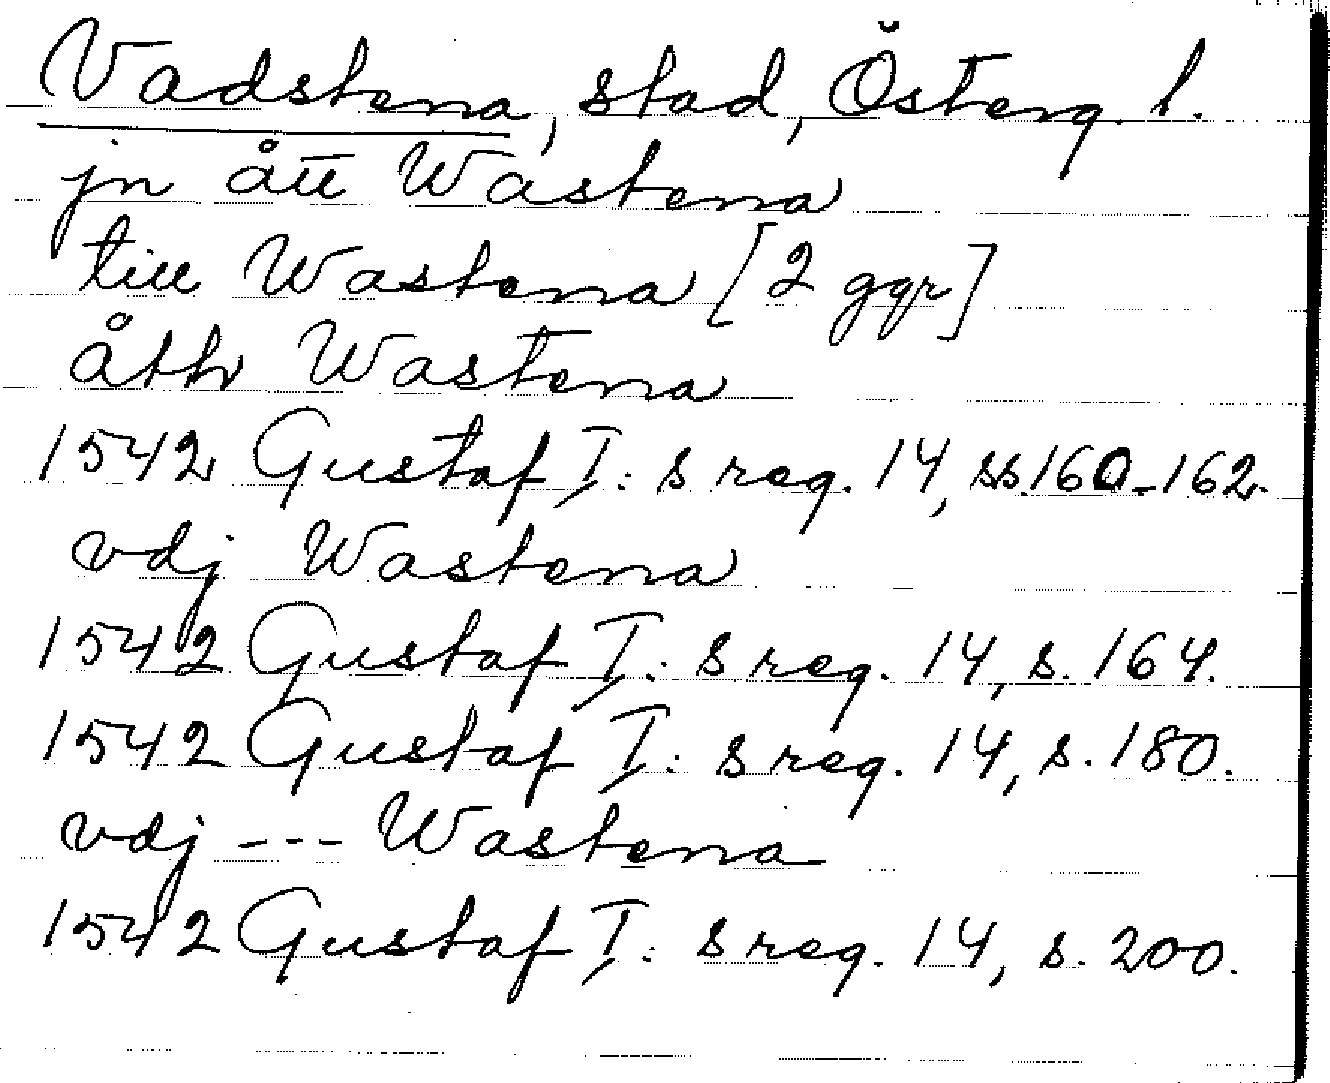 Vadstena, stad, Österg. l.
jn ått Wastena
till Wastena [2 ggr]
åth Wastena
1542 Gustaf I: s reg. 14, ss. 160-162.
vdj Wastena
1542 Gustaf I: s reg. 14, s. 164.
1542 Gustaf I: s reg. 14, s. 180.
vdj --- Wastena
1542 Gustaf I: s reg. 14, s. 200.